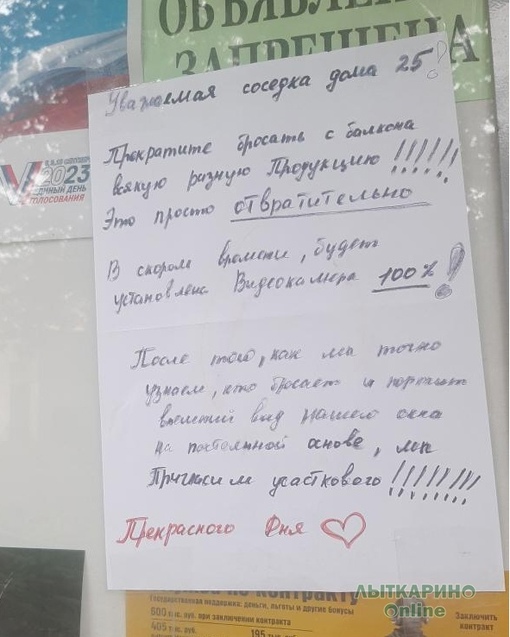 ОБЪЯВЛЕН
ЗАПРЕЩЕНА
2023
ЕДИНЫЙ ДЕНЬ
ГОЛОСОВАНИЯ
Уважаемая соседка дома 25!
Прекратите бросать с балкона
всякую разную Продукцию !!!!!!
Это просто отвратительно
В скором времени, будет
установлена Видеокамера 100% !
После того, как мы точно
узнаем, кто бросает и портит
внешний вид нашего окна
на постоянной основе, мы
Пригласим усасткового !!!!!!!!
Прекрасного Дня ♡
по контракту
Государственная поддержка: деньги, льготы и другие бонусы
600 тыс. руб. при заключении контракта
405 т.с. руб.
195 тыс. руб.
Заключить
контракт
ЛЫТКАРИНО
Online